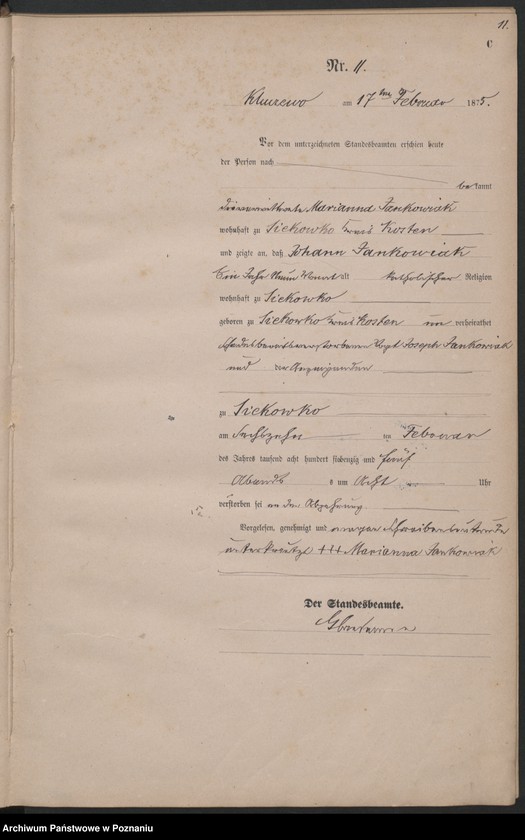 11.
C
Nr. 11.
Kluczewo am 17ten Februar 1875.
Vor dem unterzeichneten Standesbeamten erschien heute
der Person nach
bekannt
Marianna Jankowiak
wohnhaft zu Siekowko Kreis Kosten
und zeigte an, daß Johann Jankowiak
Ein Jahr Neun Monat alt katholischer Religion
wohnhaft zu Siekowko
geboren zu Siekowko Kreis Kosten un verheirathet
Vogt Joseph Jankowiak
und der Anzeigenden
zu Siekowko
am Sechszehn ten Februar
des Jahres tausend acht hundert siebenzig und fünf
Abends s um Acht Uhr
verstorben sei an der Abzehrung
Vorgelesen, genehmigt und wegen Schreibens
unterkreuzt +++ Marianna Jankowiak
Der Standesbeamte.
Archiwum Państwowe w Poznaniu